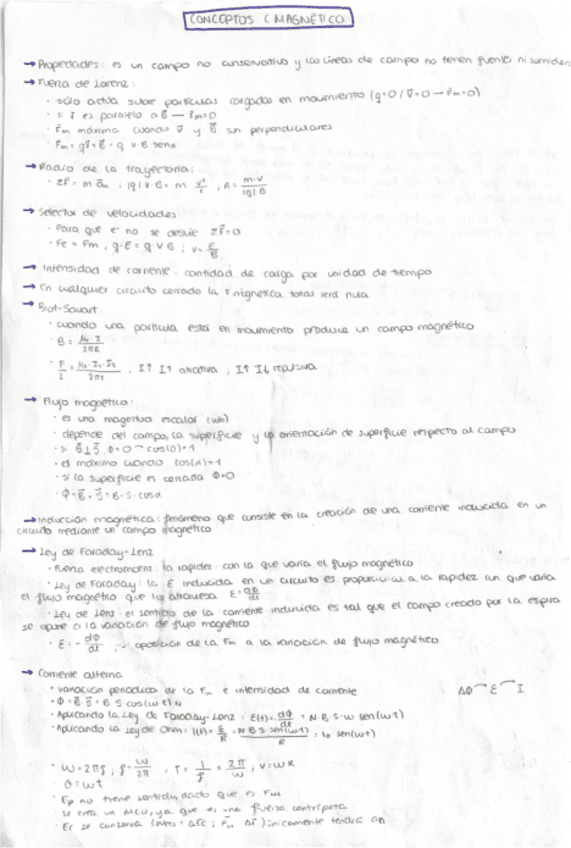 CONCEPTOS C MAGNÉTICO
→ Propiedades: es un campo no conservativo y las líneas de campo no tienen fuentes ni sumideros
→ Fuerza de Lorenz:
· sólo actúa sobre partículas cargadas en movimiento (q=0 / v⃗=0 → F⃗m=0)
· si v⃗ es paralelo a B⃗ → F⃗m=0
· F⃗m máxima cuando v⃗ y B⃗ son perpendiculares
· F⃗m = q v⃗ · B⃗ = q v B senα
→ Radio de la trayectoria:
· ΣF⃗ = m a⃗n , |q| v · B = m v²/r , R = m·v/|q| B
→ Selector de velocidades
· Para que e⁻ no se desvíe ΣF⃗=0
· Fe = Fm , q·E = q v B ; v = E/B
→ Intensidad de corriente: cantidad de carga por unidad de tiempo
→ En cualquier circuito cerrado la F magnética total será nula
→ Biot-Savart:
· cuando una partícula está en movimiento produce un campo magnético
· B = μ₀·I/2πR
· F/L = μ₀·I₁·I₂/2πr , I↑ I↑ atractiva , I↑ I↓ repulsiva
→ Flujo magnético:
· es una magnitud escalar (wb)
· depende del campo, la superficie y la orientación de superficie respecto al campo
· si B⃗⊥S⃗, Φ=0 → cos(0)=1
· es máximo cuando cos(α)=1
· si la superficie es cerrada Φ=0
· Φ = B⃗ · S⃗ = B·S·cosα
→ Inducción magnética: fenómeno que consiste en la creación de una corriente inducida en un
circuito mediante un campo magnético
→ Ley de Faraday-Lenz
· Fuerza electromotriz: la rapidez con la que varía el flujo magnético
· Ley de Faraday: la ε inducida en un circuito es proporcional a la rapidez con que varía
el flujo magnético que lo atraviesa ε = dΦ/dt
· Ley de Lenz: el sentido de la corriente inducida es tal que el campo creado por la espira
se opone a la variación de flujo magnético
· ε = - dΦ/dt , oposición de la Fm a la variación de flujo magnético
→ Corriente alterna
· variación periódica de la Fm e intensidad de corriente ΔΦ ⌒ ε ⌒ I
· Φ = B⃗ · S⃗ = B S cos(wt) N
· Aplicando la Ley de Faraday-Lenz : ε(t) = dΦ/dt = N·B·S·w sen(wt)
· Aplicando la Ley de Ohm: I(t) = ε/R = N·B·S·sen(wt)/R = I₀ sen(wt)
· W = 2πf , f = w/2π , T = 1/f = 2π/w , v = w R
· θ = wt
· Ep no tiene sentido, dado que es
· se crea un MCU, ya que es una fuerza centrípeta
· Ec se conserva únicamente tendrá an